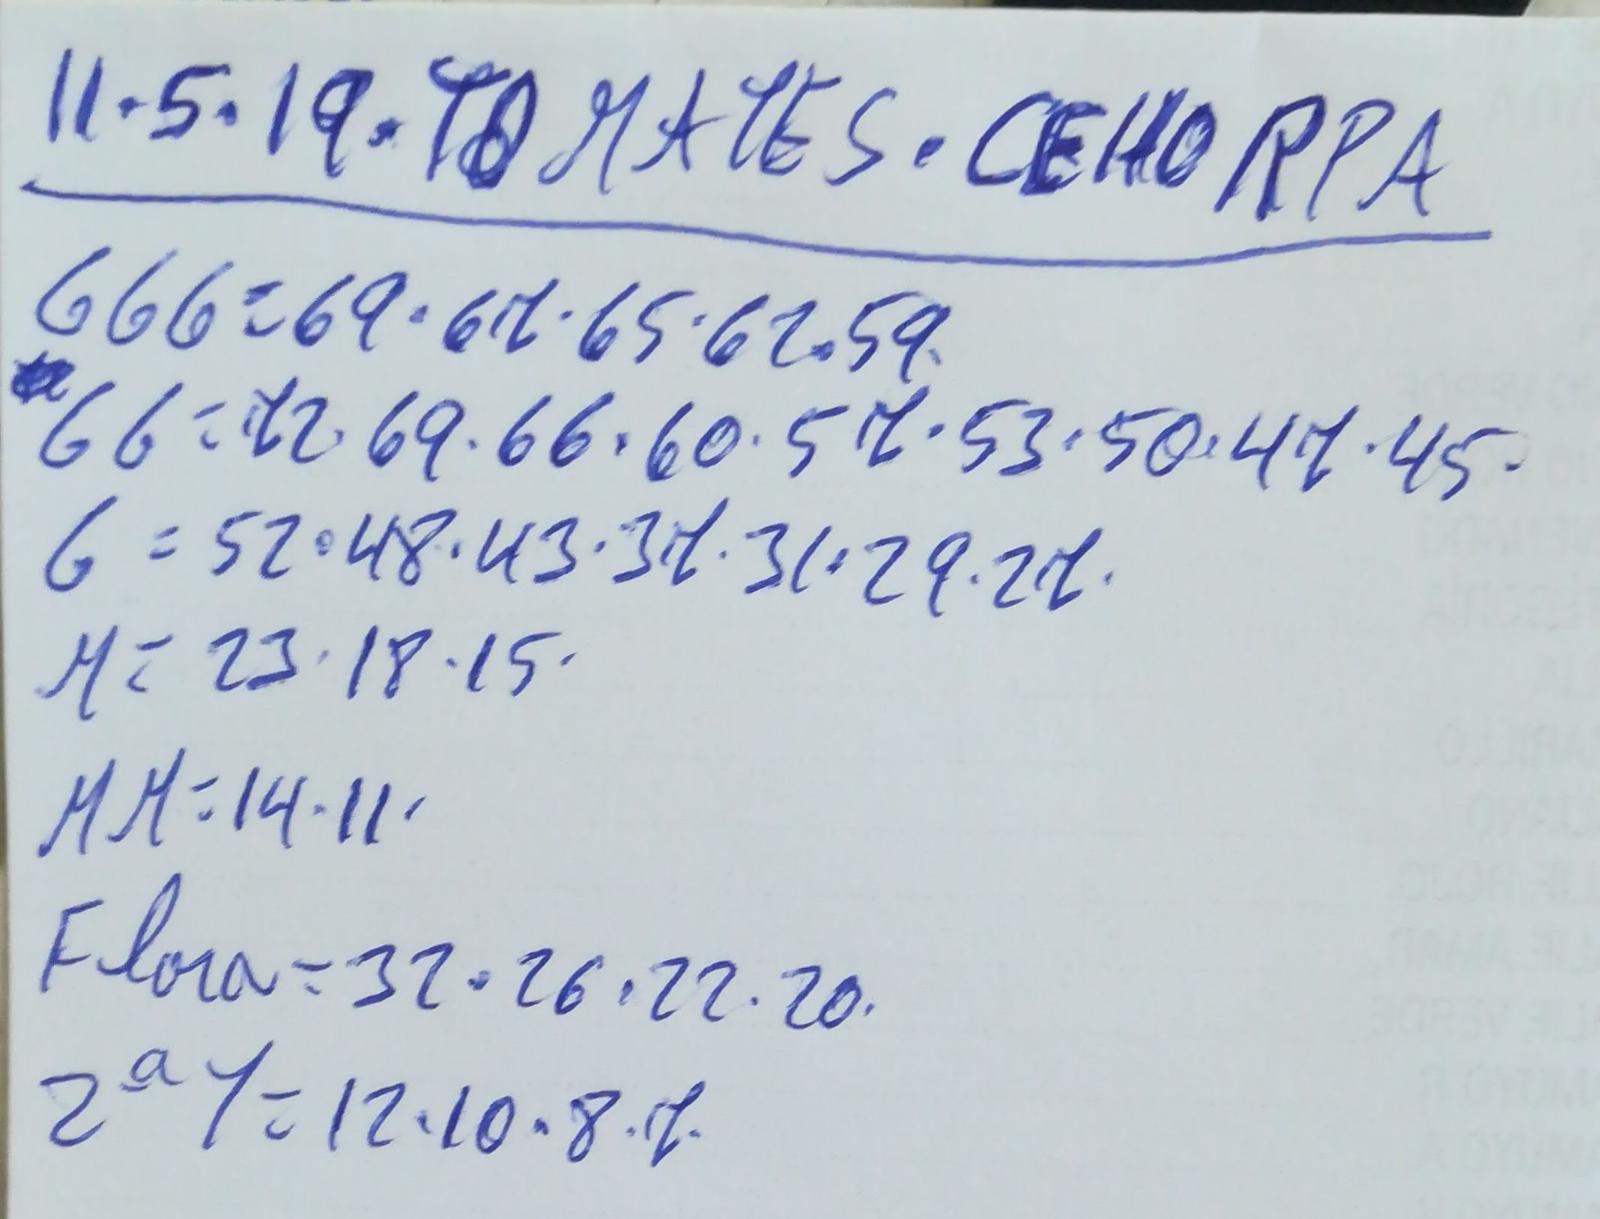 11.5.19. TOMATES. CEHORPA
GGG=69.67.65.62.59.
GG=72.69.66.60.57.53.50.47.45.
G=52.48.43.37.31.29.27.
M=23.18.15.
MM=14.11.
Flora=32.26.22.20.
2ª Y=12.10.8.7.